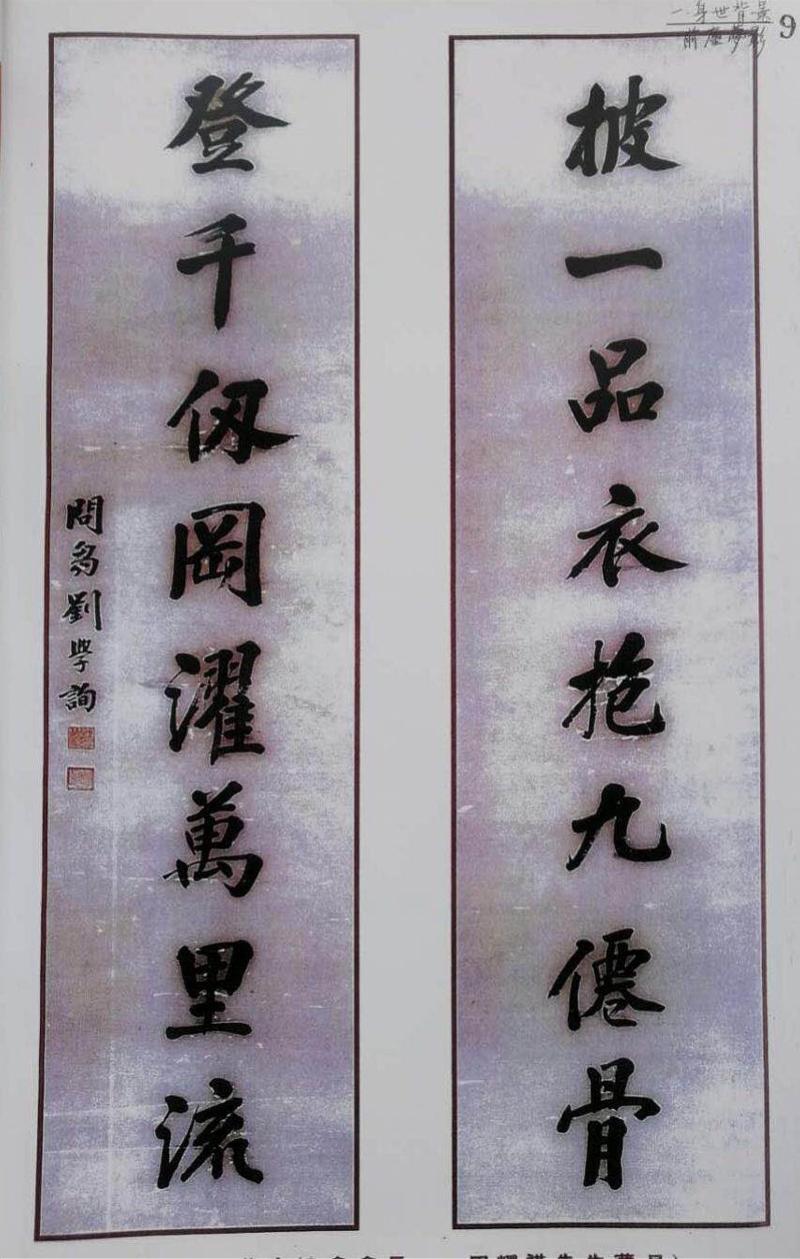 一.身世背景
前塵夢影
9
披一品衣抱九僊骨
登千仞岡濯萬里流
問芻劉學詢